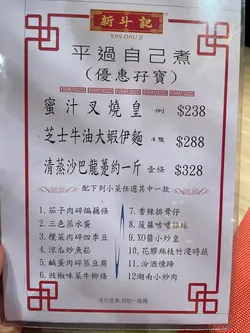 新斗記
XIN DAU JI
平過自己煮
(優惠孖寶)
蜜汁叉燒皇 例 $238
芝士牛油大蝦伊麵 4隻 $288
清蒸沙巴龍躉約一斤 壹條 $328
配下列小菜任選其中一款
1.茄子肉碎煸藕條
2.三色蒸水蛋
3.欖菜肉碎四季豆
4.涼瓜炒魚崧
5.鹹蛋肉碎蒸豆腐
6.豉椒味菜牛柳條
7.香辣排骨仔
8.菠蘿咕嚕雞球
9.XO醬小炒皇
10.花膠絲枝竹浸時蔬
11.汾酒燻蹄
12湖南小炒肉